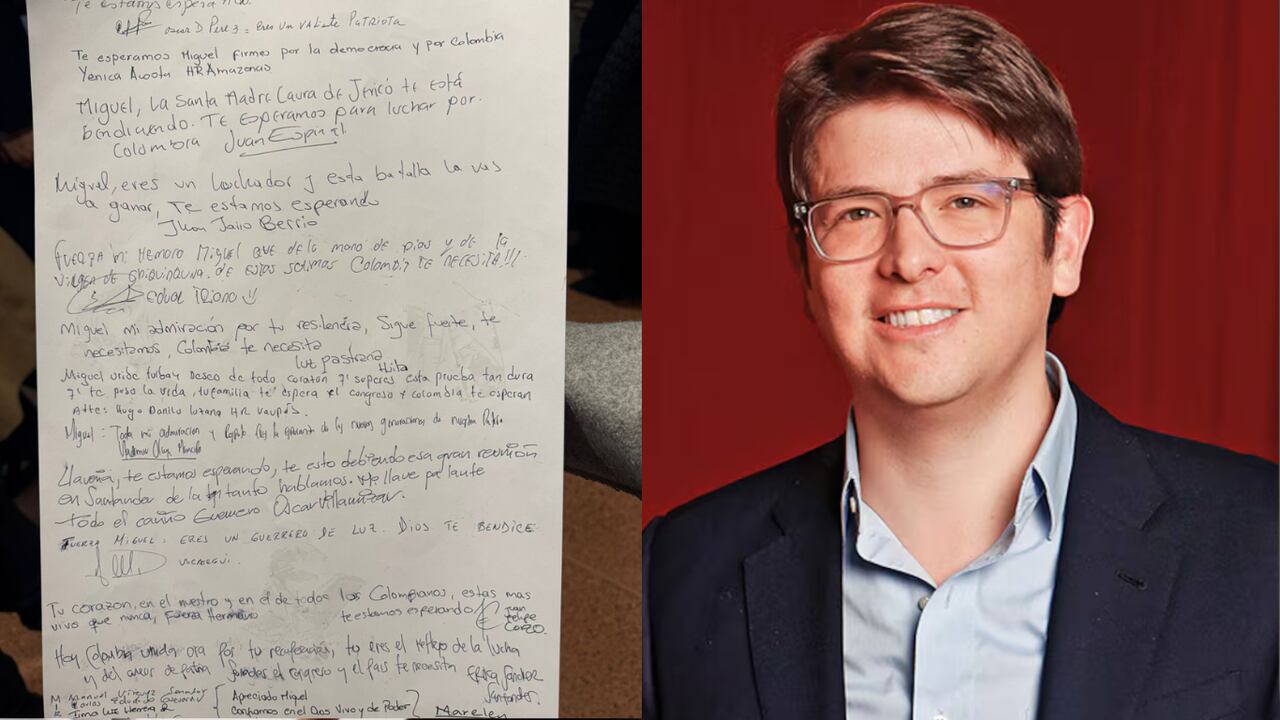 Te estamos esperando.
Oscar D Perez = eres un valiente Patriota
Te esperamos Miguel firmes por la democracia y por Colombia
Yenica Acosta HR Amazonas
Miguel, La Santa Madre Laura de Jericó te está
bendiciendo. Te esperamos para luchar por
Colombia Juan Espinal
Miguel, eres un luchador y esta batalla la vas
a ganar, Te estamos esperando
Juan Jairo Berrio
Fuerza mi Hermano Miguel que de la mano de Dios y de la
Virgen de Chiquinquira. de estas salimos Colombia te necesita!!!
Miguel mi admiración por tu resilencia, Sigue fuerte, te
necesitamos, Colombia te necesita
Luz pastrana
Miguel uribe turbay Deseo de todo corazon q' superes esta prueba tan dura
tu familia te espera el congreso y colombia te esperan
Atte: Hugo Danilo Lozano HR Vaupés.
Miguel: Toda mi admiracion y
de las nuevas generaciones de nuestra Patria
Llavería, te estamos esperando, te esto debiendo esa gran reunión
en Santander de la tanto hablamos. Mi llave pa'lante
todo el cariño Guerrero Oscar Villamizar.
Fuerza Miguel: eres un guerrero de luz. Dios te bendice
Tu corazon, en el nuestro y en el de todos los Colombianos, estas mas
vivo que nunca, Fuerza Hermano te estamos esperando Juan
Felipe
Corzo.
Hoy Colombia unida ora por tu recuperación, tu eres el reflejo de la lucha
y del amor de patria el congreso y el pais te necesita Erika Sanchez
Santander
Manuel Senador
Apreciado Miguel
Irma Luz Herrera
Confiamos en el Dios Vivo y de Poder
Marelen